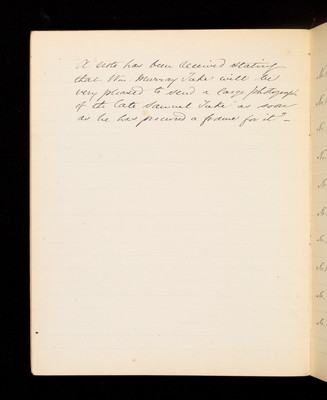 A note has been received stating
that Wm. Murray Tuke will be
very pleased to send a large photograph
of the late Samuel Tuke "as soon
as he has procured a frame for it" —